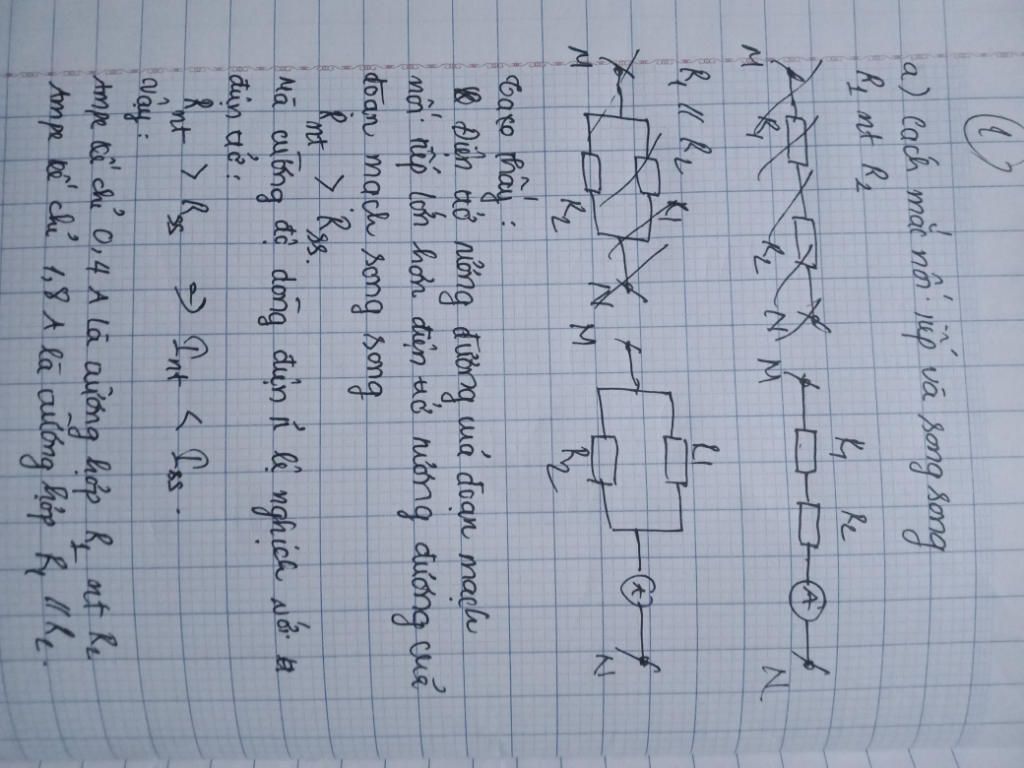 (1)
a) Cách mắc nối tiếp và song song
R1 nt R2
M R1 R2 N
M R1 R2 A N
R1 // R2
M R1 R2 N
M R1 R2 A N
thấy:
Điện trở tương đương của đoạn mạch
nối tiếp lớn hơn điện trở tương đương của
đoạn mạch song song
Rnt > Rss.
Mà cường độ dòng điện tỉ lệ nghịch với
điện trở:
Rnt > Rss => Int < Iss.
Vậy:
Ampe kế chỉ 0,4 A là trường hợp R1 nt R2
Ampe kế chỉ 1,8 A là trường hợp R1 // R2.